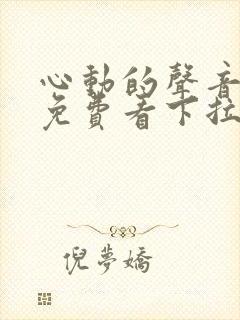 心動的聲音
免費看下拉
倪夢嬌